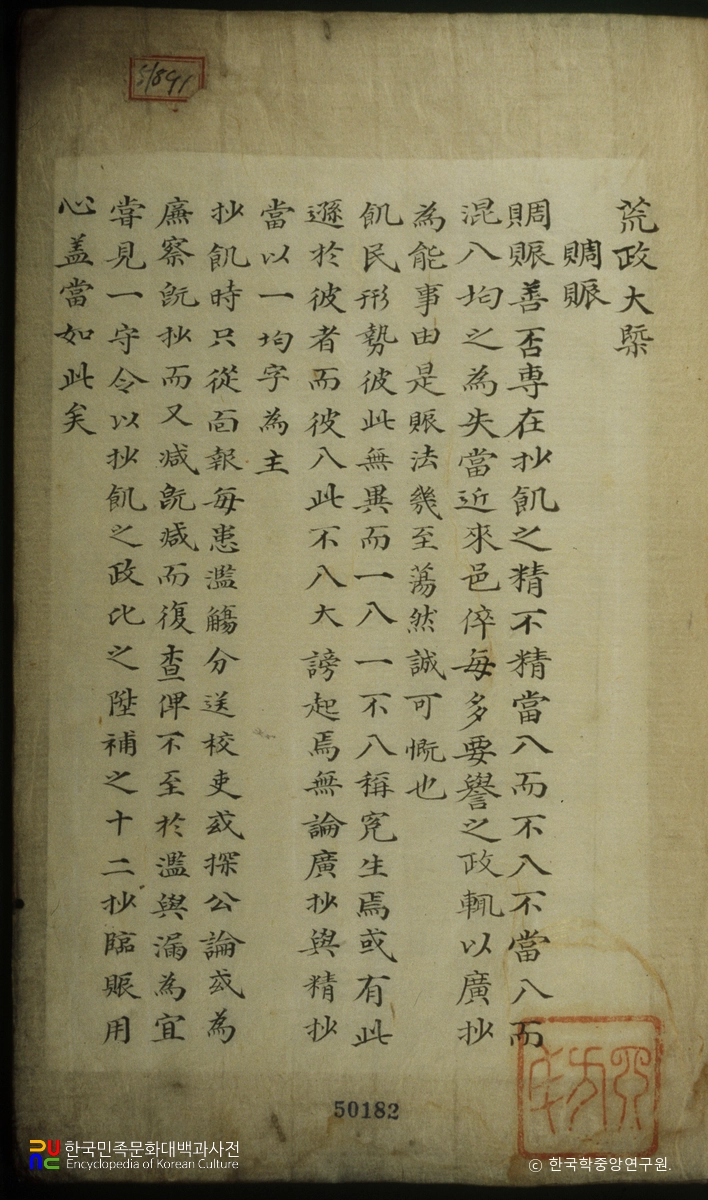 荒政大槩
賙賑
賙賑善否專在抄飢之精不精當入而不入不當入而
混入均之為失當近來邑倅每多要譽之政輒以廣抄
為能事由是賑法幾至蕩然誠可慨也
飢民形勢彼此無異而一入一不入稱寃生焉或有此
遜於彼者而彼入此不入大謗起焉無論廣抄與精抄
當以一均字為主
抄飢時只從面報每患濫觴分送校吏或探公論或為
廉察旣抄而又減旣減而復查俾不至於濫與漏為宜
甞見一守令以抄飢之政比之陞補之十二抄臨賑用
心盖當如此矣
50182
한국민족문화대백과사전
Encyclopedia of Korean Culture
ⓒ 한국학중앙연구원.